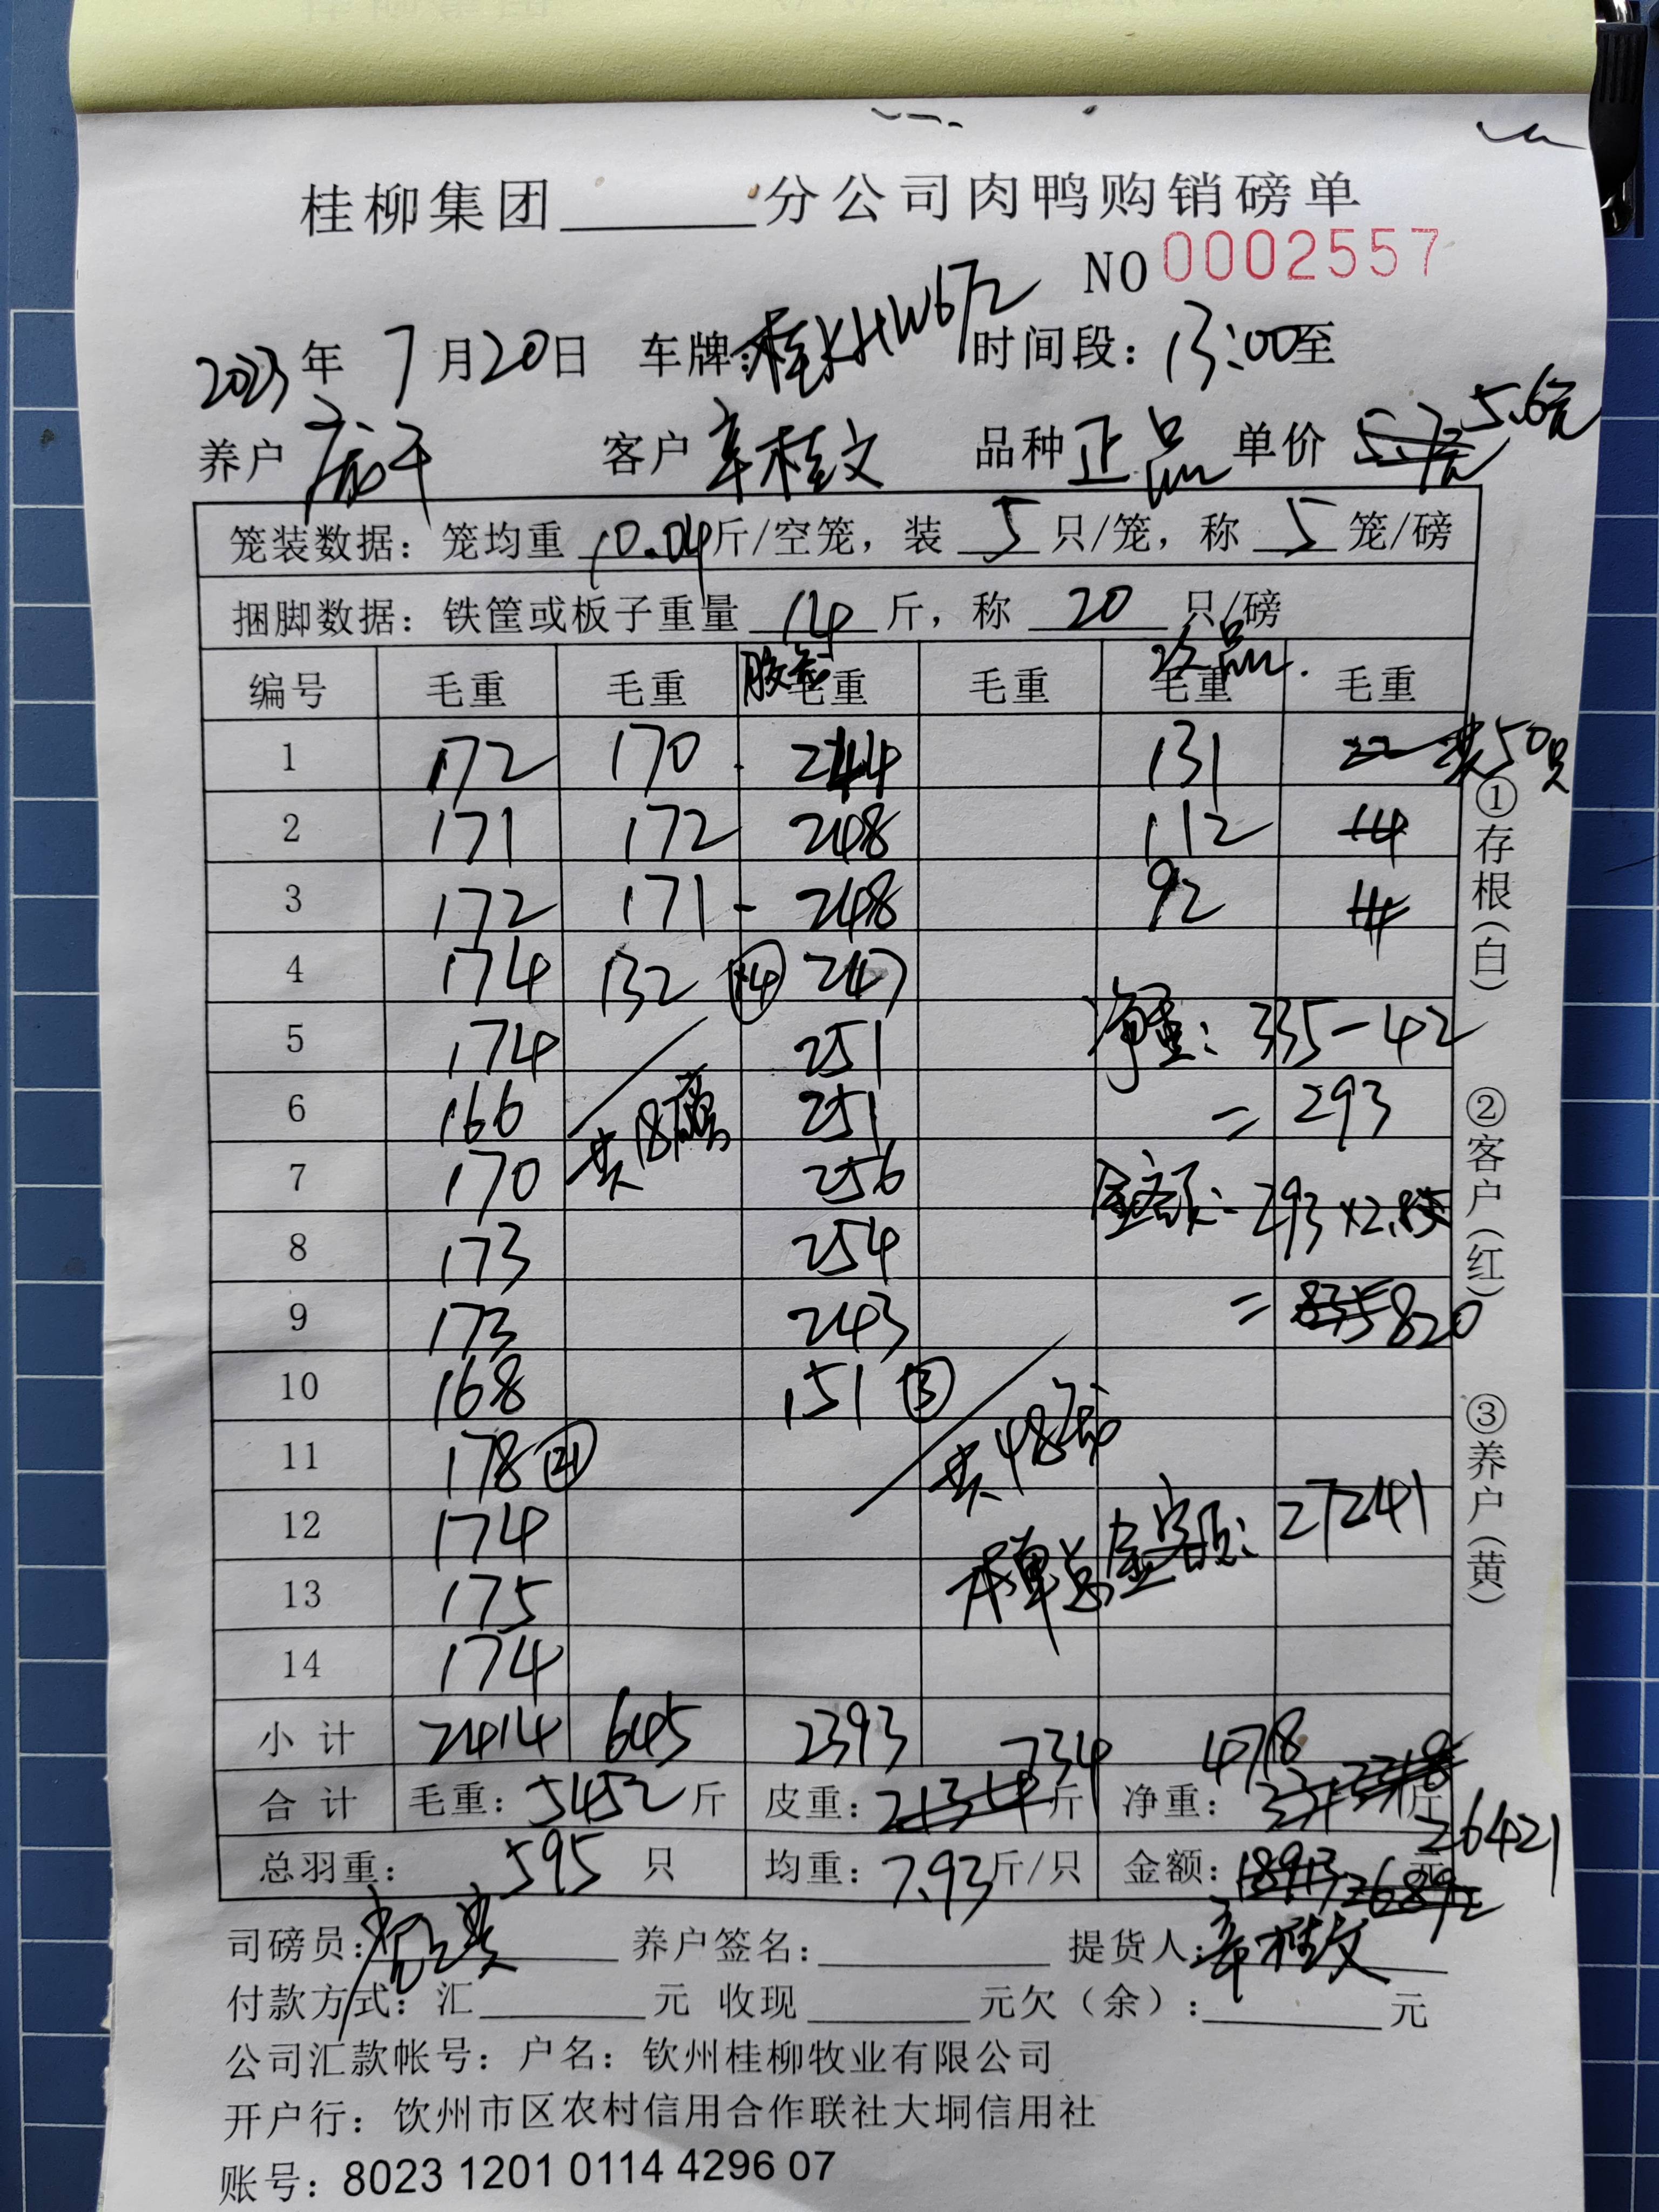 桂柳集团 分公司肉鸭购销磅单
NO 0002557
2023年 7月20日 车牌:桂KHW672 时间段: 13:00至
养户 客户 辛桂文 品种 正品 单价 5.7元 5.6元
笼装数据: 笼均重 10.04斤/空笼, 装 5 只/笼, 称 5 笼/磅
捆脚数据: 铁筐或板子重量 14 斤, 称 20 只/磅
编号 毛重 毛重 胶笼 毛重 毛重 次品. 毛重 毛重
1 172 170 244 131 22 共50只
2 171 172 248 112 14
3 172 171 248 92 14
4 174 132 ⑭ 247
5 174 251 净重: 335-42
6 166 共18磅 251 = 293
7 170 256 金额: 293×2.85
8 173 254
9 173 243 = 835 820
10 168 151 ③
11 178 ㉑ 共48笼
12 174 本单总金额: 27241
13 175
14 174
小计 2414 645 2393 734 4718
合计 毛重: 5452斤 皮重: 斤 净重: 斤
26421
总羽重: 595 只 均重: 7.93斤/只 金额: 元
司磅员: 养户签名: 提货人: 辛桂文
付款方式: 汇 元 收现 元欠(余): 元
公司汇款帐号: 户名: 钦州桂柳牧业有限公司
开户行: 钦州市区农村信用合作联社大垌信用社
账号: 8023 1201 0114 4296 07
①存根(白)
②客户(红)
③养户(黄)